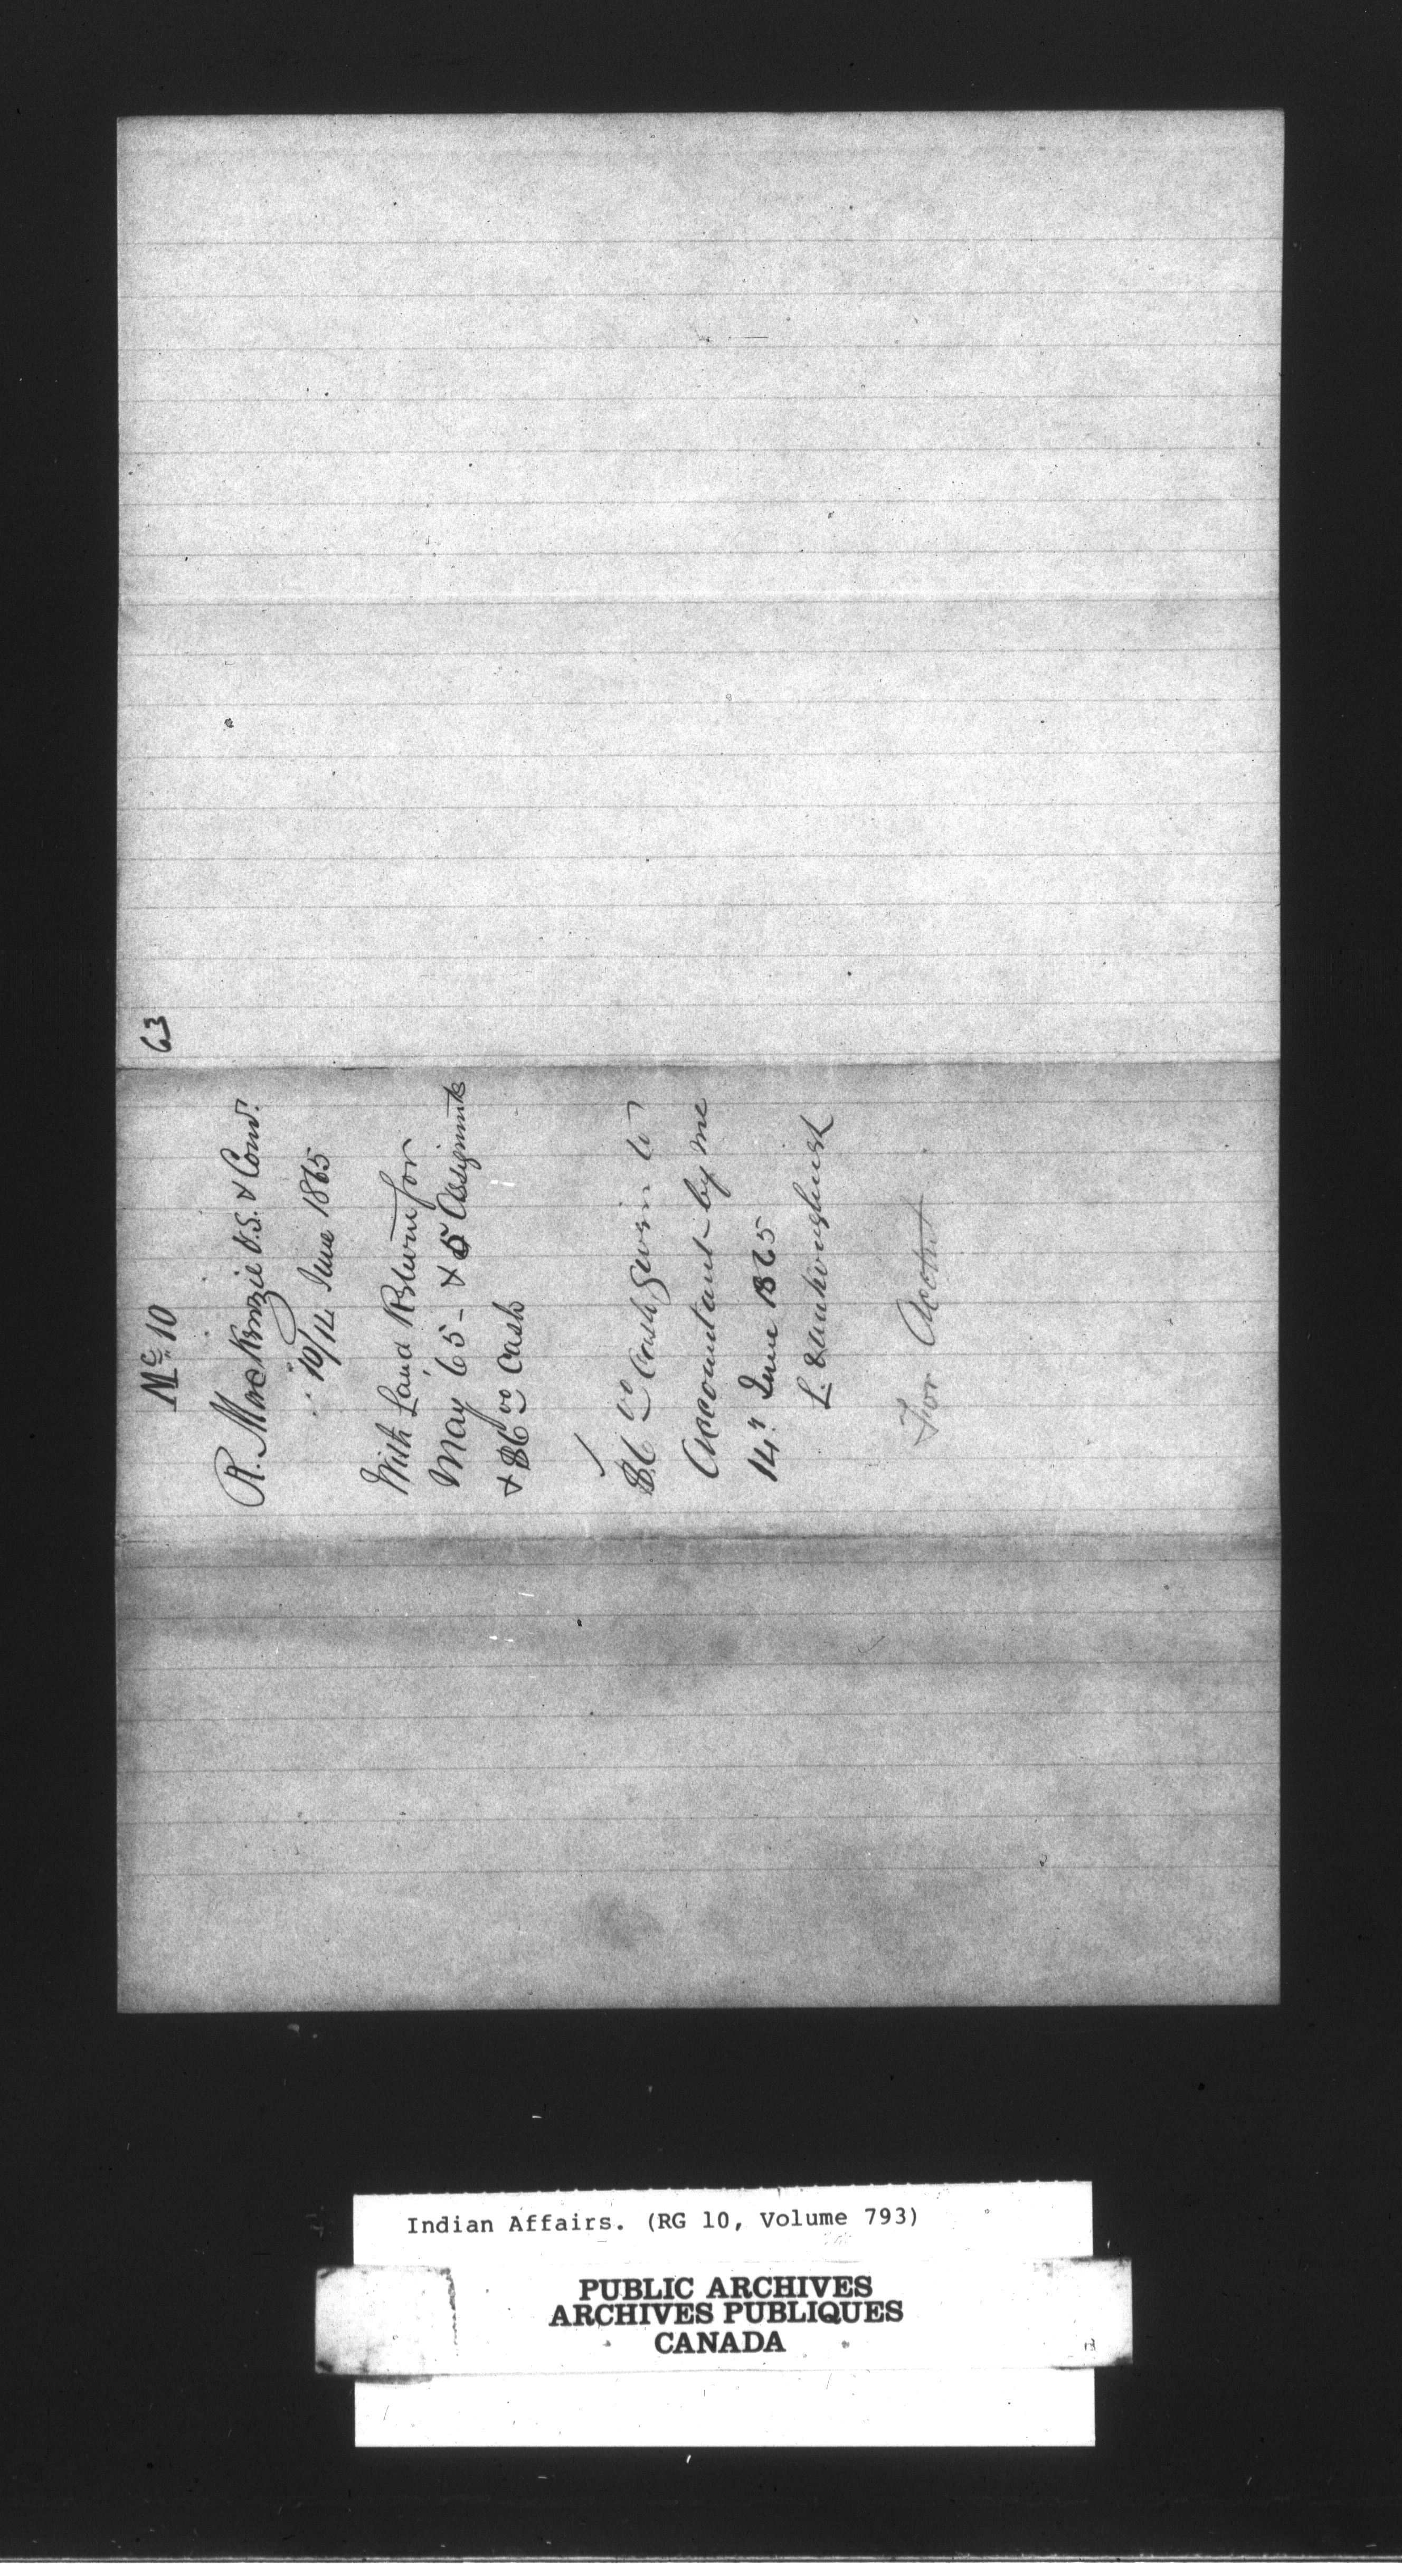 63
Mc 10
R. MacKenzie V.S. & Com.r
10/14 June 1865
With Land Return for
May 65 - & 5 Assignmts
& $6 00 Cash
$6 00 Cash given to
Accountant by me
14" June 1865
L.
For Acctnt
Indian Affairs. (RG 10, Volume 793)
PUBLIC ARCHIVES
ARCHIVES PUBLIQUES
CANADA